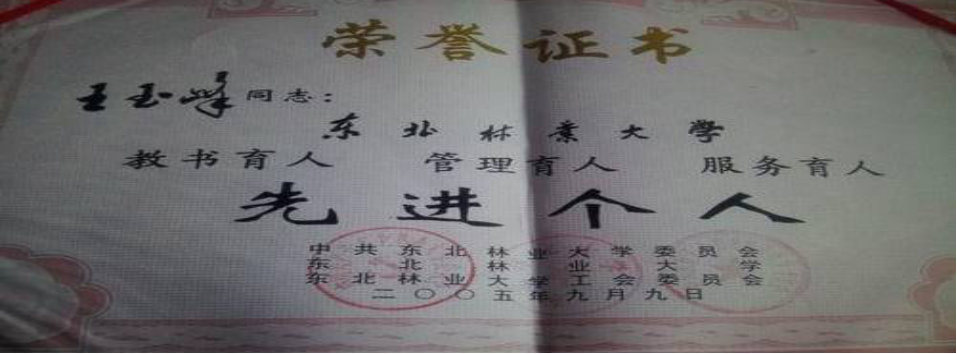 荣誉证书
王玉峰同志：
东北林业大学
教书育人 管理育人 服务育人
先进个人
中共东北林业大学委员会
东北林业大学
东北林业大学工会委员会
二〇〇五年九月九日